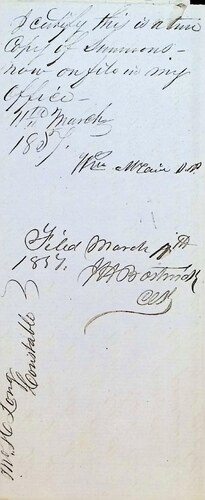 I certify this is a true
Copy of Summons -
now on file in my
office -
11th March
1857.
Wm McCain
Filed March 11th
1857.
Wm H Long
Constable